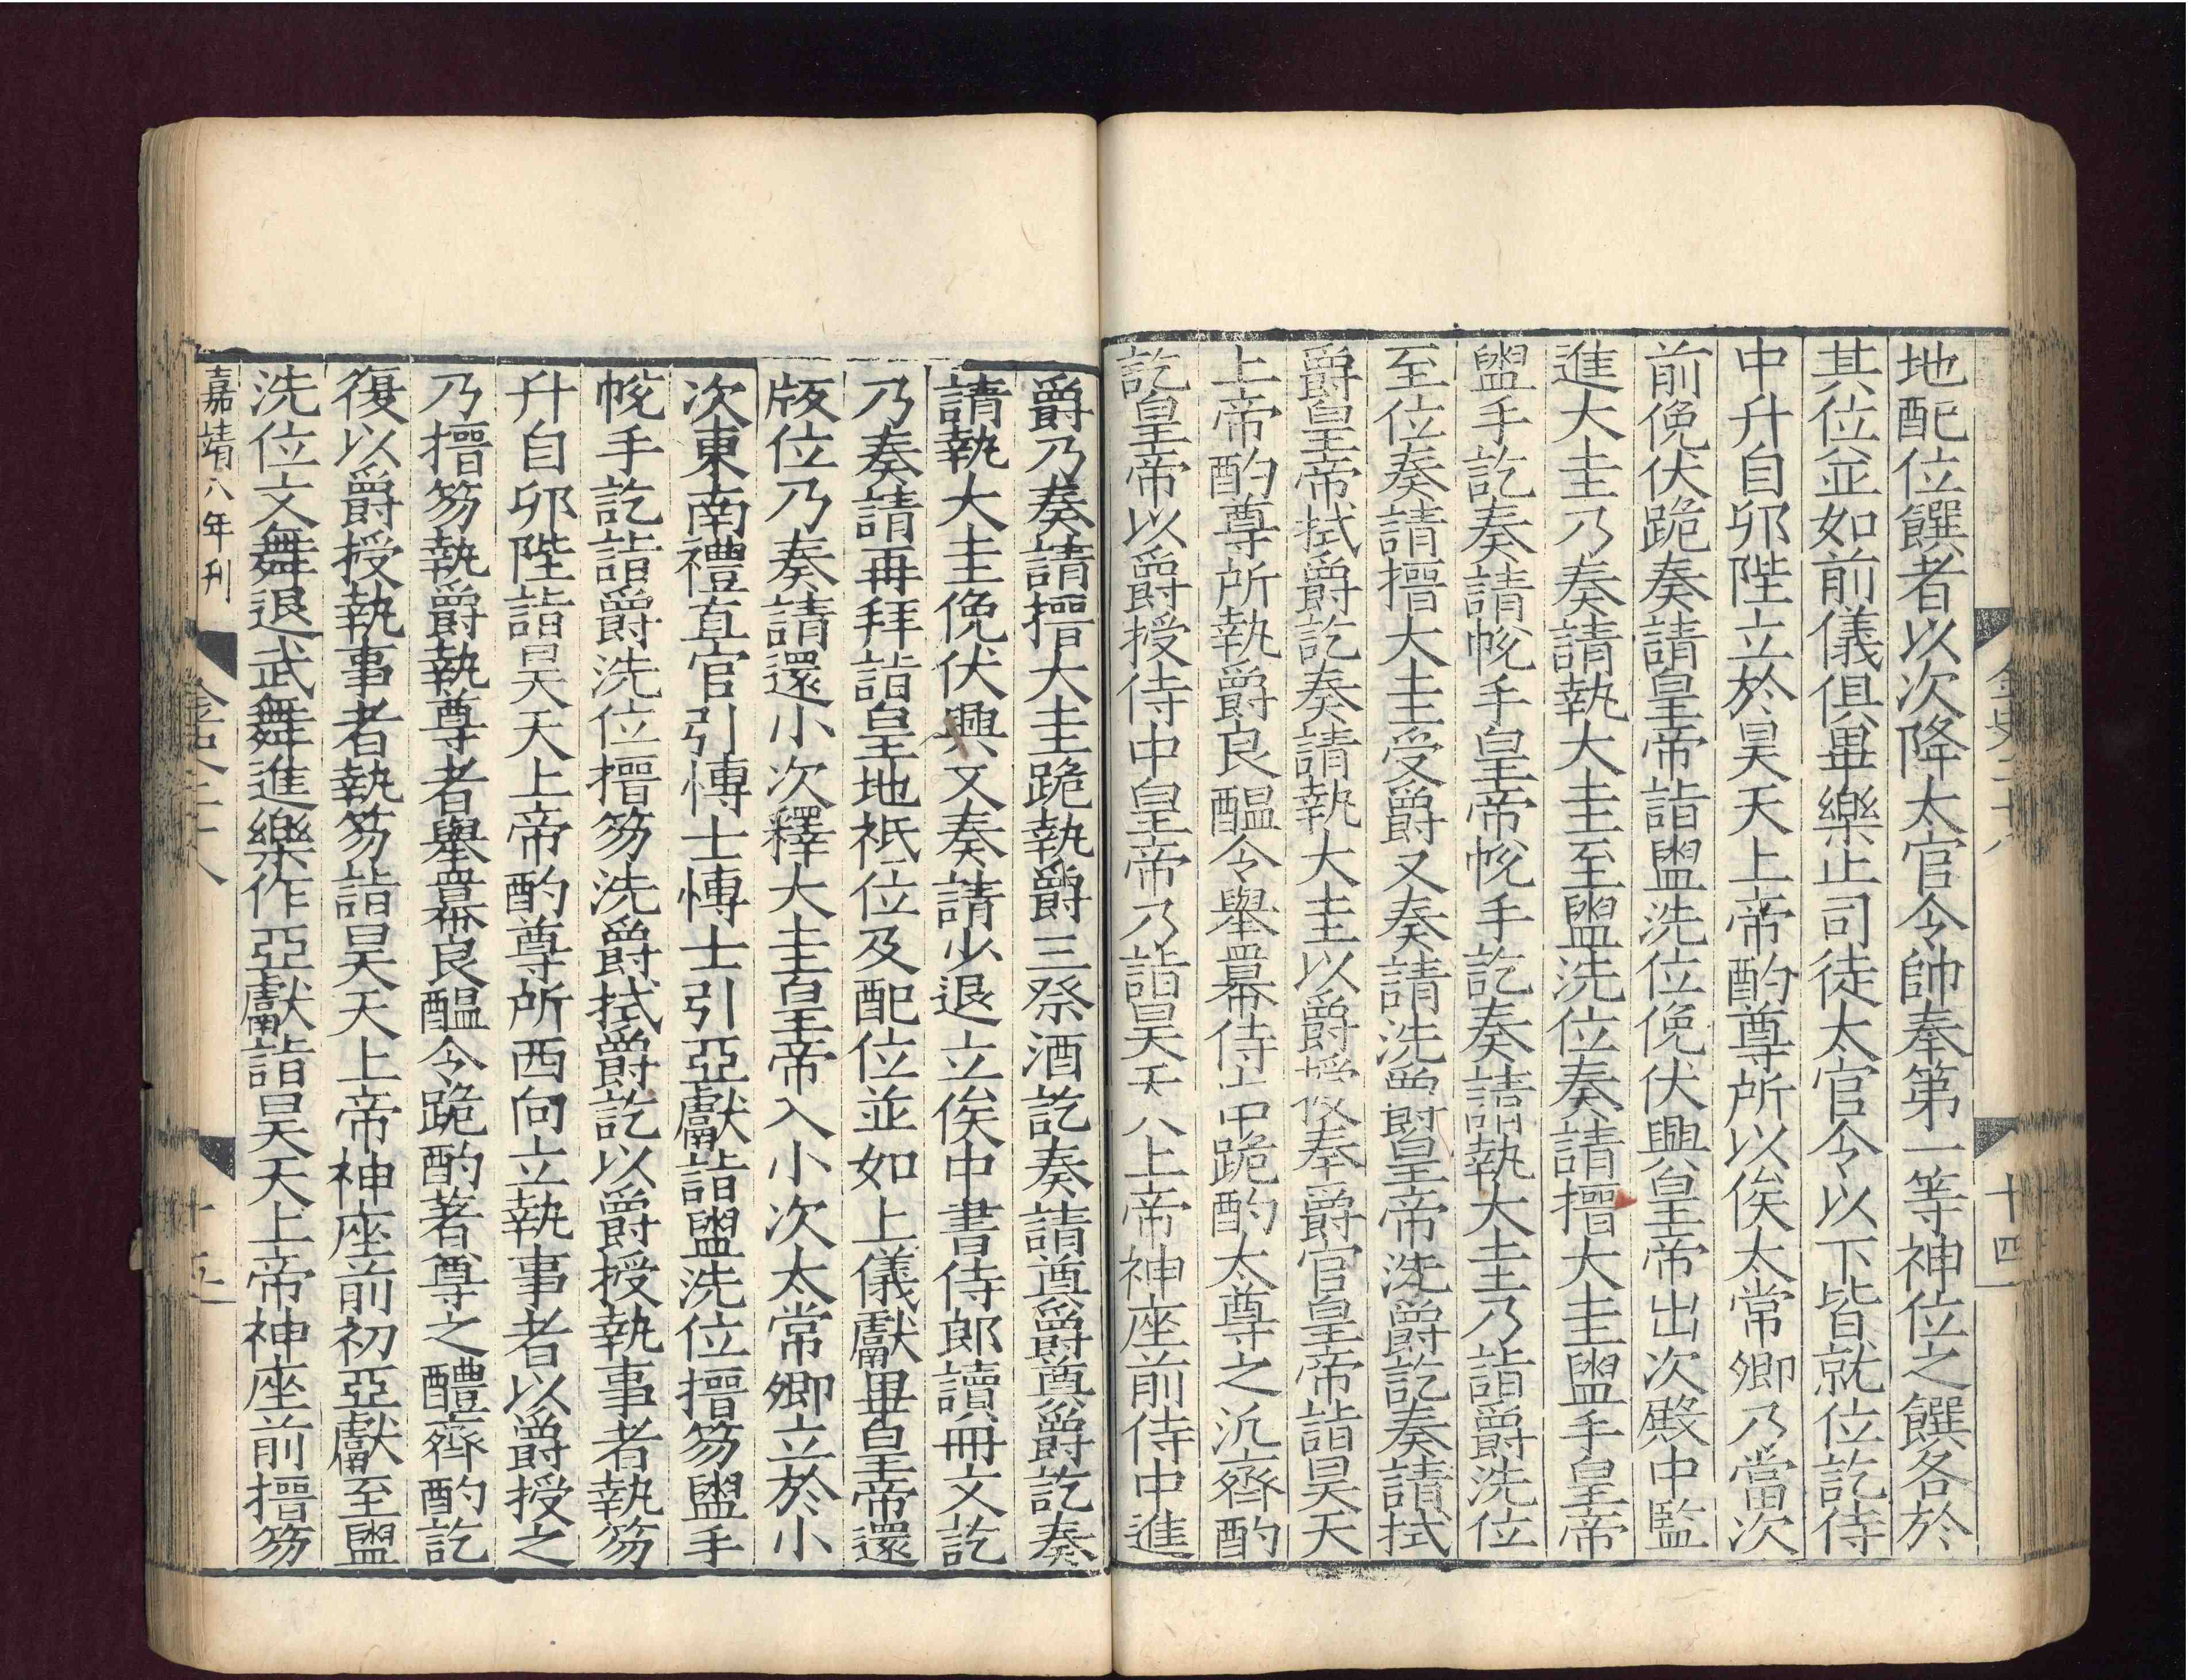 地配位饌者以次降太官令帥奉第一等神位之饌各於
其位並如前儀俱畢樂止司徒太官令以下皆就位訖侍
中升自卯陛立於昊天上帝酌尊所以俟太常卿乃當次
前俛伏跪奏請皇帝詣盥洗位俛伏興皇帝出次殿中監
進大圭乃奏請執大圭至盥洗位奏請搢大圭盥手皇帝
盥手訖奏請帨手皇帝帨手訖奏請執大圭乃詣爵洗位
至位奏請搢大圭受爵又奏請洗爵皇帝洗爵訖奏請拭
爵皇帝拭爵訖奏請執大圭以爵授奉爵官皇帝詣昊天
上帝酌尊所執爵良醞令舉冪侍中跪酌太尊之汎齊酌
訖皇帝以爵授侍中皇帝乃詣昊天上帝神座前侍中進
金史二十八
十四
爵乃奏請搢大圭跪執爵三祭酒訖奏請奠爵奠爵訖奏
請執大圭俛伏興又奏請少退立俟中書侍郎讀冊文訖
乃奏請再拜詣皇地祇位及配位並如上儀獻畢皇帝還
版位乃奏請還小次釋大圭皇帝入小次太常卿立於小
次東南禮直官引博士博士引亞獻詣盥洗位搢笏盥手
帨手訖詣爵洗位搢笏洗爵拭爵訖以爵授執事者執笏
升自卯陛詣昊天上帝酌尊所西向立執事者以爵授之
乃搢笏執爵執尊者舉冪良醞令跪酌著尊之醴齊酌訖
復以爵授執事者執笏詣昊天上帝神座前初亞獻至盥
洗位文舞退武舞進樂作亞獻詣昊天上帝神座前搢笏
嘉靖八年刊
金史二十八
十五